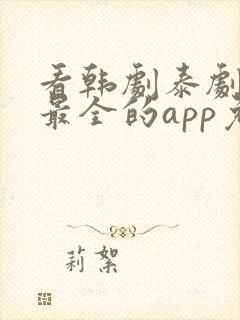 看韩劇泰劇
最全的app
莉絮